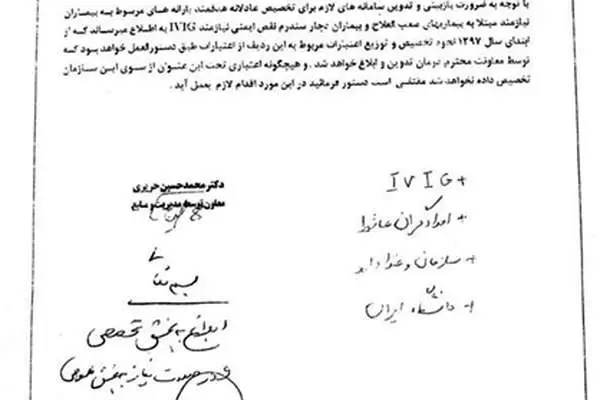 با توجه به ضرورت بازبینی و تدوین سامانه های لازم برای تخصیص عادلانه هدفمند، یارانه های مربوط به بیماران
نیازمند مبتلا به بیماریهای صعب العلاج و بیماران دچار سندرم نقص ایمنی نیازمند IVIG به اطلاع میرساند که از
ابتدای سال ۱۳۹۷ نحوه تخصیص و توزیع اعتبارات مربوط به این ردیف از اعتبارات طبق دستورالعمل خواهد بود که
توسط معاونت محترم درمان تدوین و ابلاغ خواهد شد . و هیچگونه اعتباری تحت این عنوان از سوی این سازمان
تخصیص داده نخواهد شد مقتضی است دستور فرمائید در این مورد اقدام لازم بعمل آید .
دکتر محمدحسین حریری
معاون توسعه مدیریت و منابع
+ IVIG
+ امدادگران عاشورا
+ سازمان و غذا دارو
+ دانشگاه ایران
ابلاغ به بخش تخصصی
و در صورت نیاز به بخش عمومی